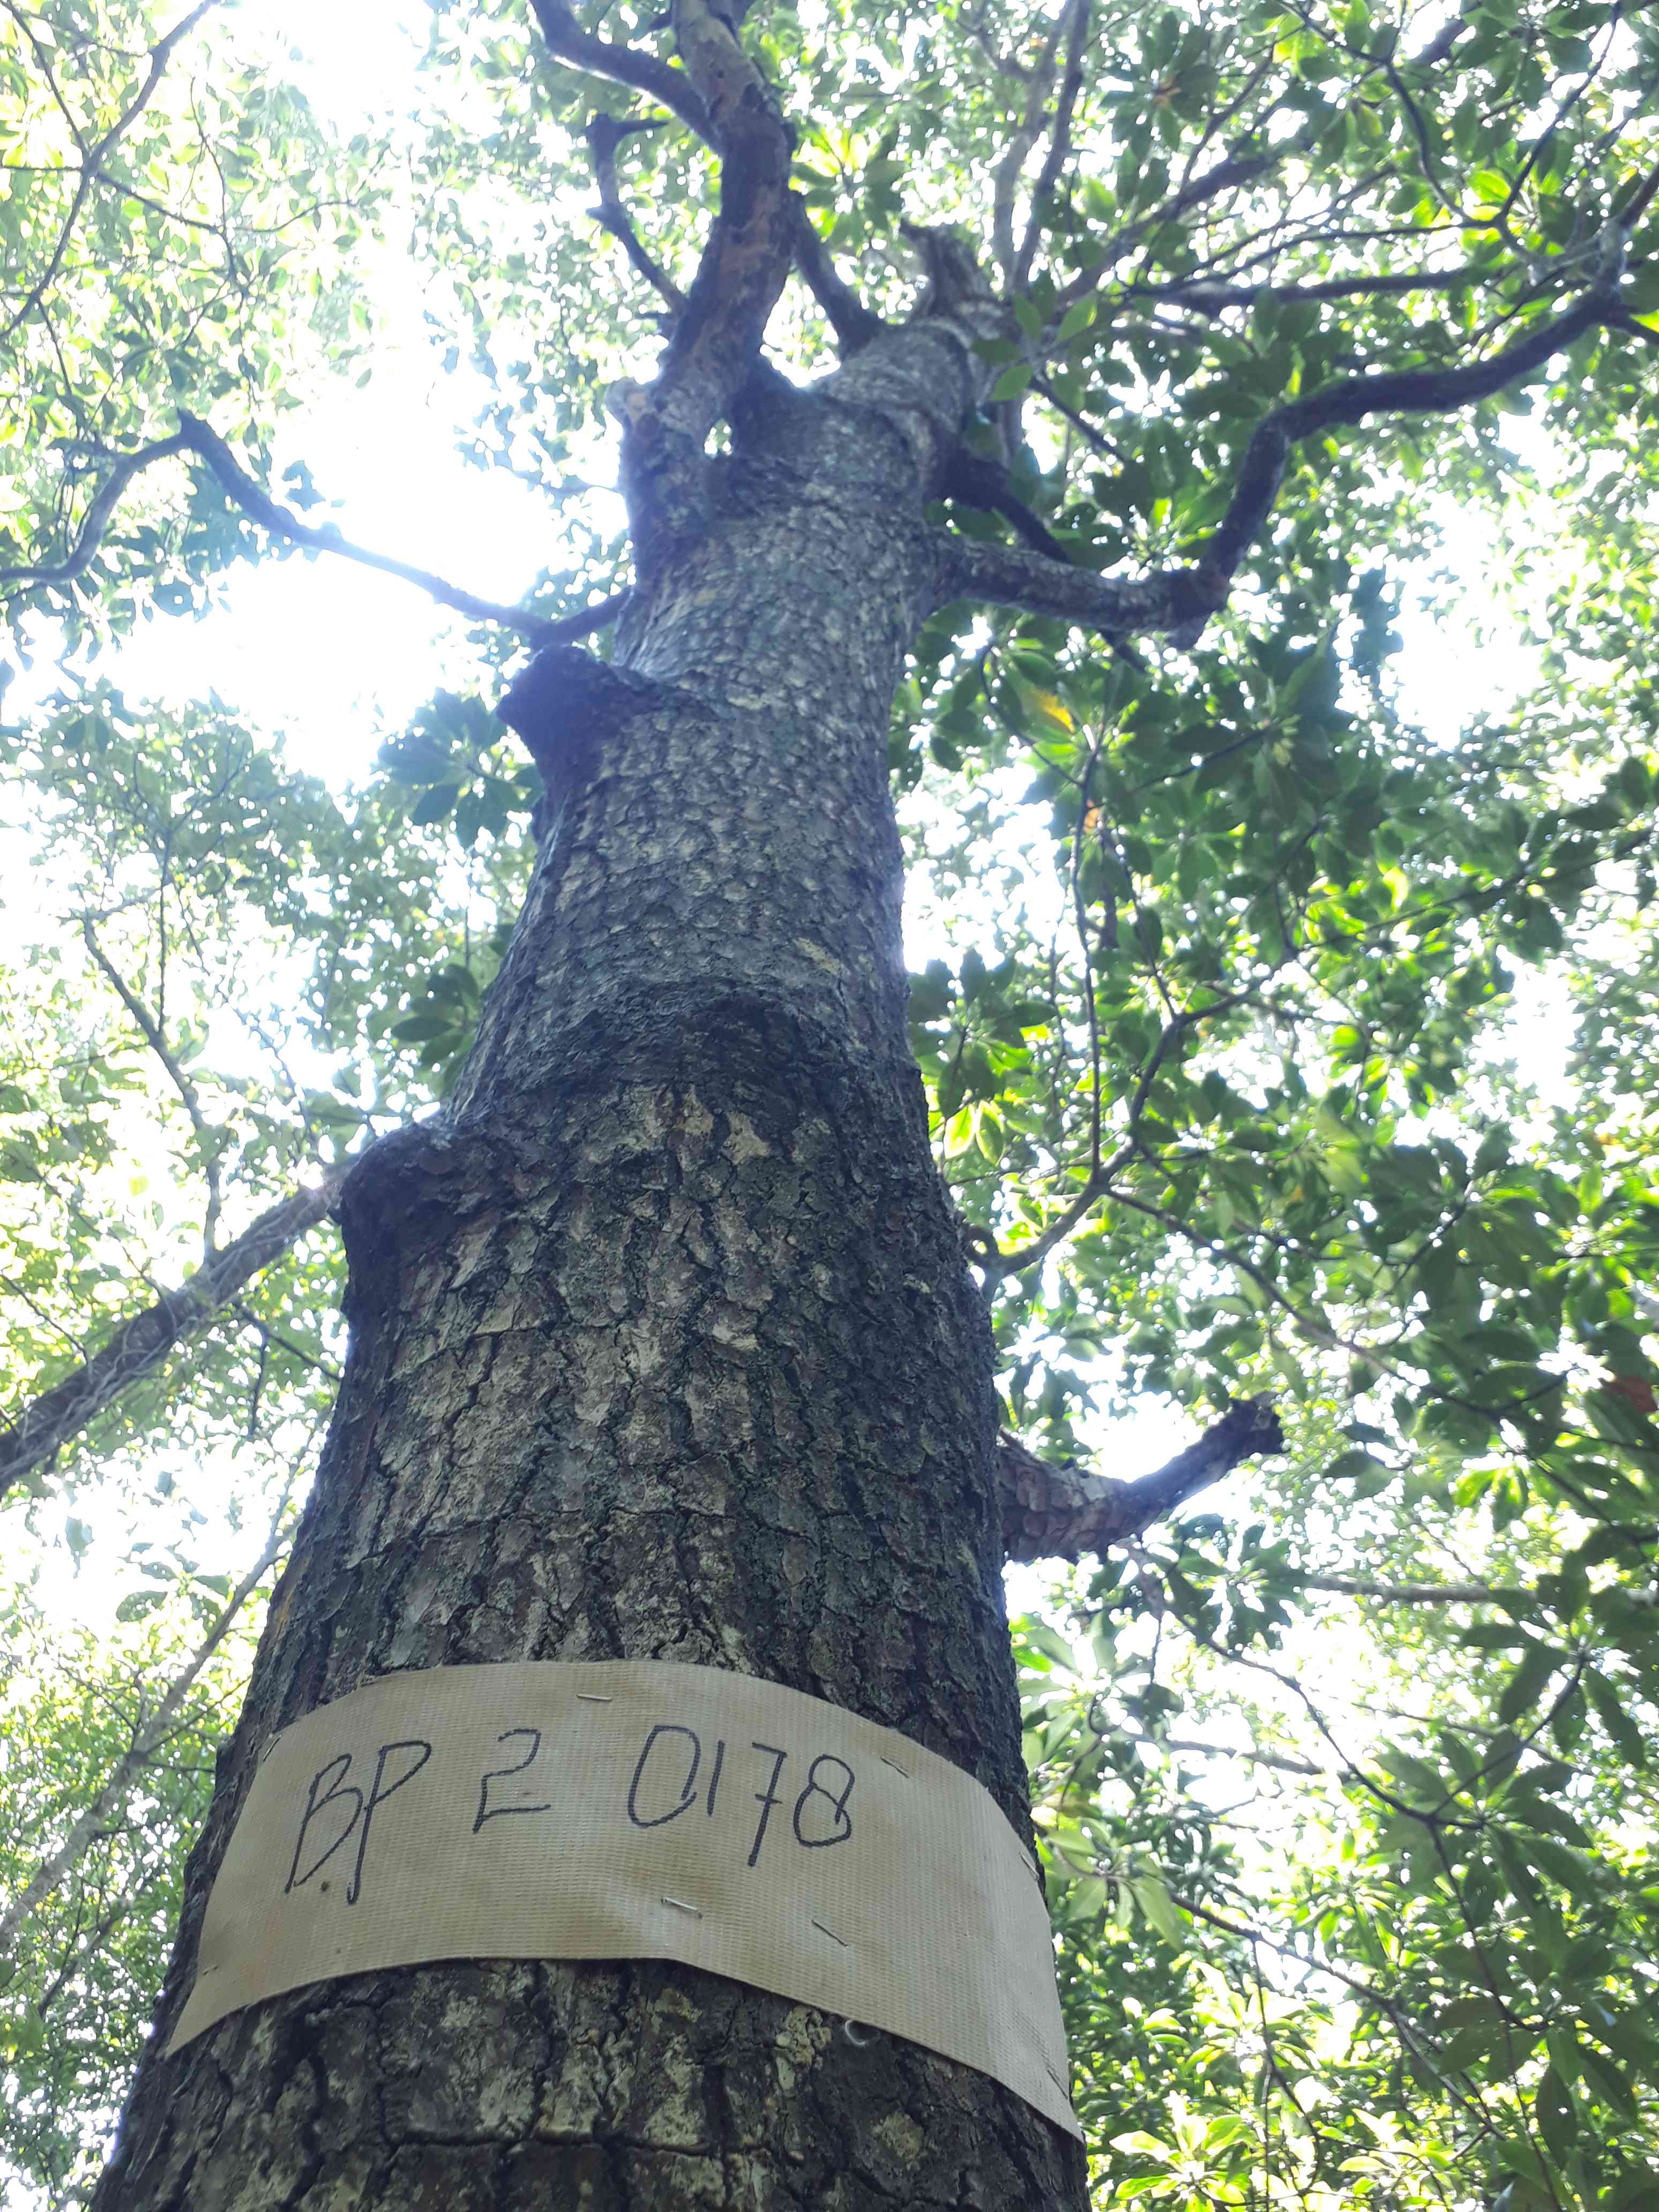 BP 2 0178